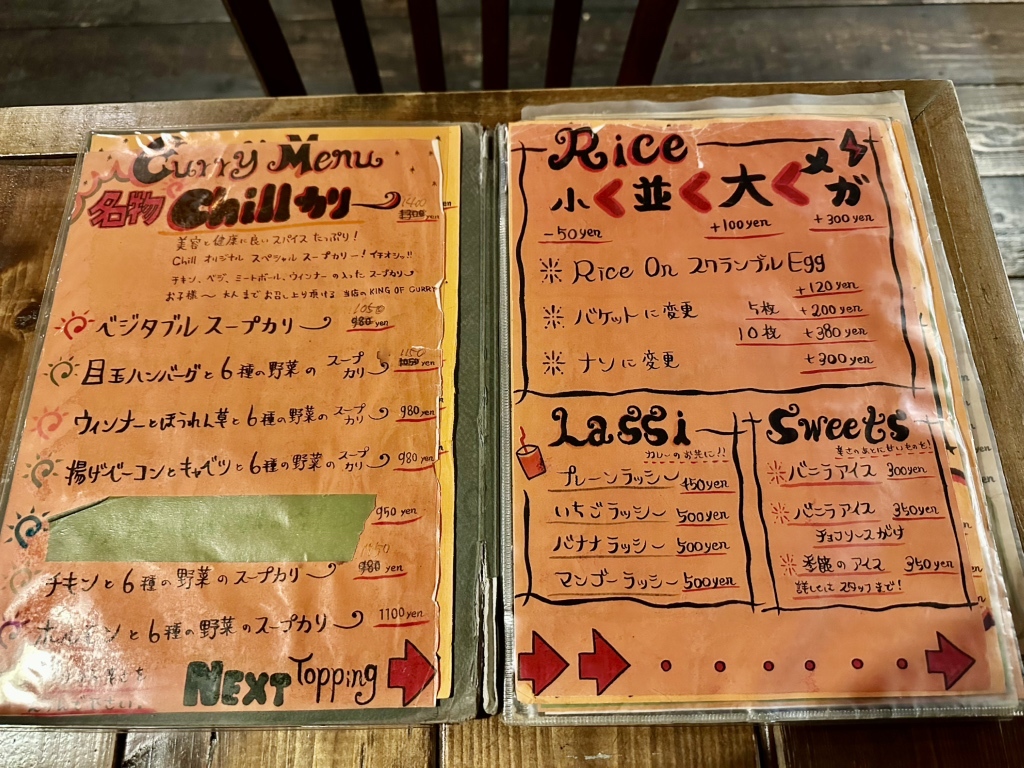 Curry Menu
名物 Chill カリー 1400 yen
美容と健康に良いスパイスたっぷり!
Chill オリジナル スペシャル スープカリー!イチオシッ!!
チキン、ベジ、ミートボール、ウィンナーの入ったスープカリー
お子様〜大人までお召し上り頂ける 当店のKING OF CURRY
ベジタブル スープカリー 1050 980 yen
目玉ハンバーグと6種の野菜の スープカリー 1150 1050 yen
ウィンナーとほうれん草と6種の野菜の スープカリー 980 yen
揚げベーコンとキャベツと6種の野菜の スープカリー 980 yen
950 yen
チキンと6種の野菜のスープカリー 980 yen
と6種の野菜のスープカリー 1100 yen
NEXT Topping
Rice
小く並く大くメガ
-50yen +100yen +300yen
Rice On スクランブル Egg
+120yen
バケットに変更 5枚 +200yen
10枚 +380yen
ナンに変更 +300yen
Lassi
カレーのお共に!!
プレーンラッシー 450yen
いちごラッシー 500yen
バナナラッシー 500yen
マンゴーラッシー 500yen
Sweets
辛さのあとに甘いものを!
バニラアイス 300yen
バニラアイス 350yen
チョコソースがけ
季節のアイス 350yen
詳しくはスタッフまで!